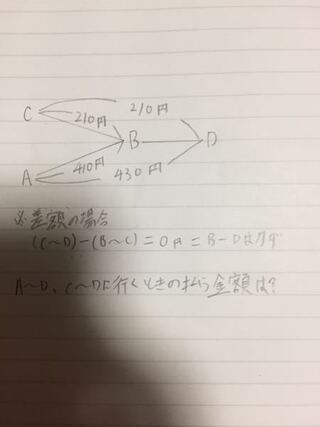 C 210円 210円
B D
A 410円 430円
※差額の場合
(C〜D)-(B〜C)=0円=B-Dはタダ
A〜D、C〜Dに行くときの払う金額は?